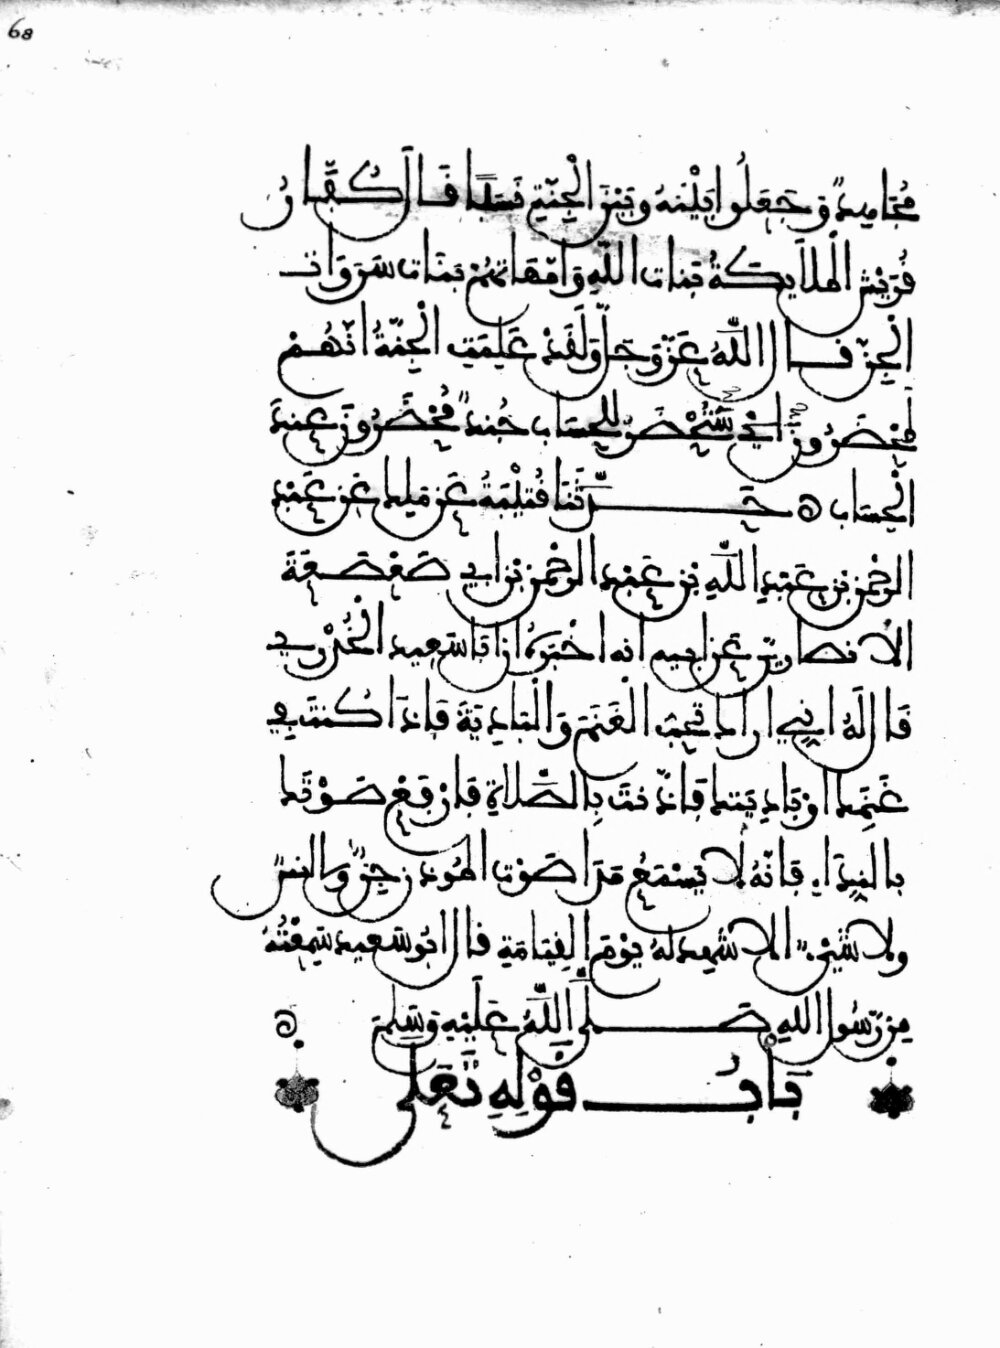 68
مُجَاهِدٌ وَجَعَلُوا بَيْنَهُ وَبَيْنَ الْجِنَّةِ نَسَبًا قَالَ كُفَّارُ
قُرَيْشٍ الْمَلَايِكَةُ بَنَاتُ اللَّهِ وَأُمَّهَاتُهُمْ بَنَاتُ سَرَوَاتِ
الْجِنِّ قَالَ اللَّهُ عَزَّ وَجَلَّ وَلَقَدْ عَلِمَتِ الْجِنَّةُ إِنَّهُمْ
لَمُحْضَرُونَ أَيْ سَتُحْضَرُ لِلْحِسَابِ جُنْدٌ مُحْضَرُونَ عِنْدَ
الْحِسَابِ ه حَدَّثَنَا قُتَيْبَةُ عَنْ مَلِكٍ عَنْ عَبْدِ
الرَّحْمَنِ بْنِ عَبْدِ اللَّهِ بْنِ عَبْدِ الرَّحْمَنِ بْنِ أَبِي صَعْصَعَةَ
الْأَنْصَارِيِّ عَنْ أَبِيهِ أَنَّهُ أَخْبَرَهُ أَنَّ أَبَا سَعِيدٍ الْخُدْرِيَّ
قَالَ لَهُ إِنِّي أَرَاكَ تُحِبُّ الْغَنَمَ وَالْبَادِيَةَ فَإِذَا كُنْتَ فِي
غَنَمِكَ أَوْ بَادِيَتِكَ فَأَذَّنْتَ بِالصَّلَاةِ فَارْفَعْ صَوْتَكَ
بِالنِّدَاءِ فَإِنَّهُ لَا يَسْمَعُ مَدَا صَوْتِ الْمُوَذِّنِ جِنٌّ وَلَا إِنْسٌ
وَلَا شَيْءٌ إِلَّا شَهِدَ لَهُ يَوْمَ الْقِيَامَةِ قَالَ أَبُو سَعِيدٍ سَمِعْتُهُ
مِنْ رَسُولِ اللَّهِ صَلَّى اللَّهُ عَلَيْهِ وَسَلَّمَ ه
بَابُ قَوْلِهِ تَعَلَى